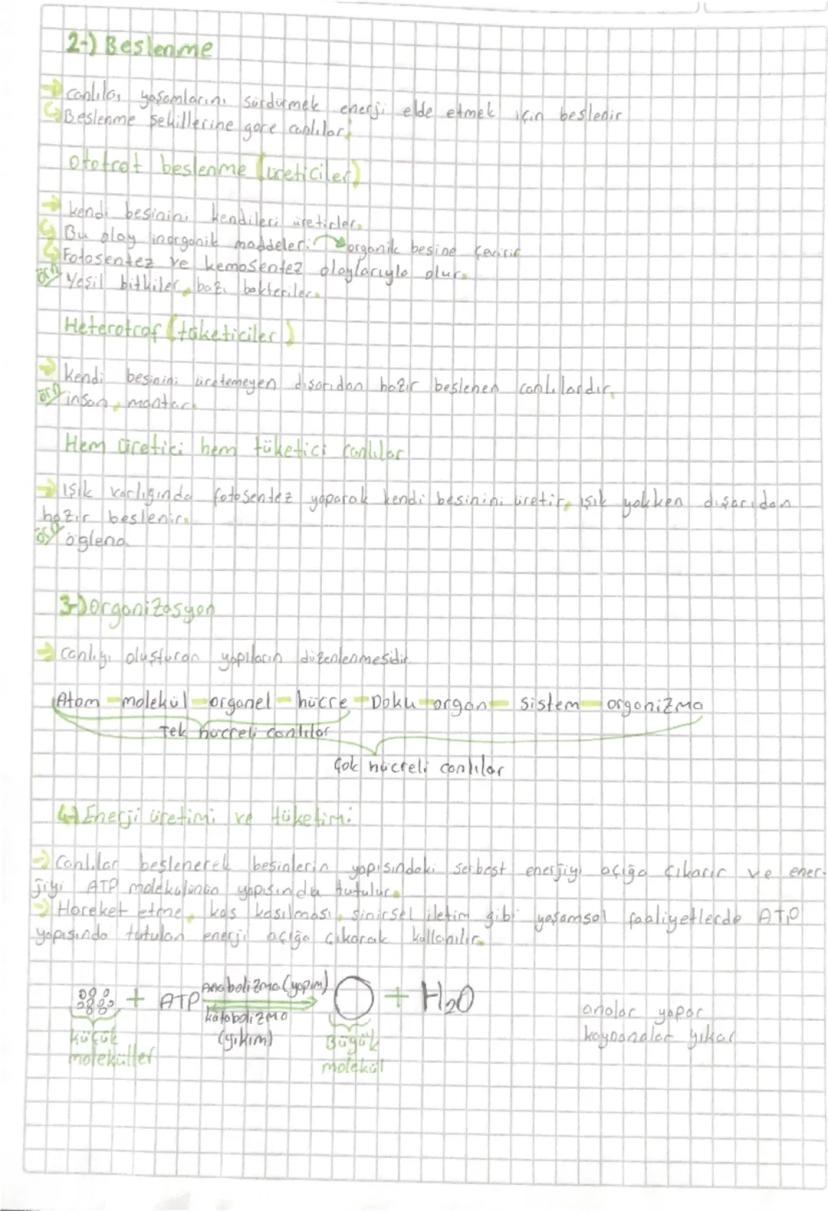 2-) Beslenme
→ canlılar yaşamlarını sürdürmek enerji elde etmek için beslenir
Beslenme şekillerine göre canlılar;
ototrof beslenme (üreticiler)
→ kendi besinini kendileri üretirler.
Bu olay inorganik maddeleri → organik besine çevirir
Fotosentez ve kemosentez olaylarıyla olur.
örn Yeşil bitkiler, bazı bakteriler.
Heterotrof (tüketiciler)
→ Kendi besinini üretemeyen dışarıdan hazır beslenen canlılardır.
örn insan, mantar.
Hem üretici hem tüketici canlılar
→ Işık varlığında fotosentez yaparak kendi besinini üretir, ışık yokken dışarıdan
hazır beslenir.
örn öglena
3-) organizasyon
→ canlıyı oluşturan yapıların düzenlenmesidir
Atom - molekül - organel - hücre - Doku - organ - sistem - organizma
Tek hücreli canlılar
Çok hücreli canlılar
4-) Enerji üretimi ve tüketimi
→ Canlılar beslenerek besinlerin yapısındaki serbest enerjiyi açığa çıkarır ve ener-
jiyi ATP molekülünün yapısında tutulur.
→ Hareket etme, kas kasılması, sinirsel iletim gibi yaşamsal faaliyetlerde ATP
yapısında tutulan enerji açığa çıkarak kullanılır.
+ ATP Anabolizma (yapım) + H₂O
katabolizma
(yıkım)
küçük
moleküller
Büyük
molekül
analar yapar
kaynanalar yıkar